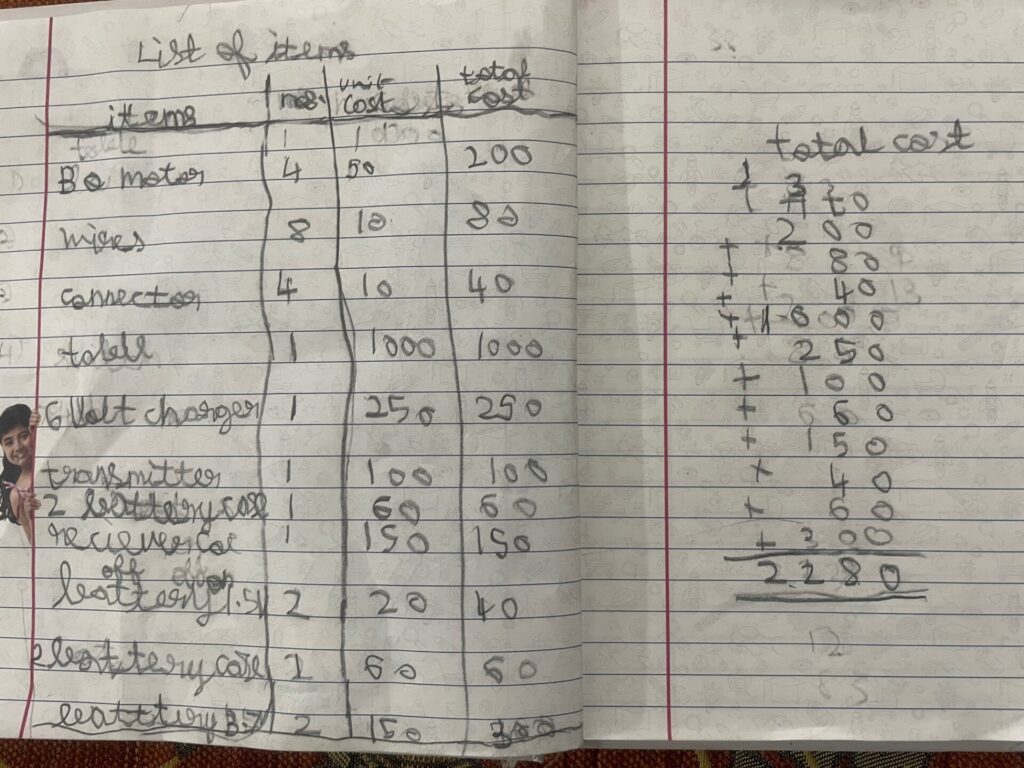 List of items
items nos. unit cost total cost
1 1
BO motor 4 50 200
wires 8 10 80
connector 4 10 40
1 1000 1000
6 Volt charger 1 250 250
transmitter 1 100 100
2 battery case 1 60 60
reciever car 1 150 150
off
battery 1.5V 2 20 40
battery case 1 60 60
batttery 3.7 2 150 300
total cost
200
+ 80
+ 40
+ 1000
+ 250
+ 100
+ 60
+ 150
+ 40
+ 60
+ 300
2280
12